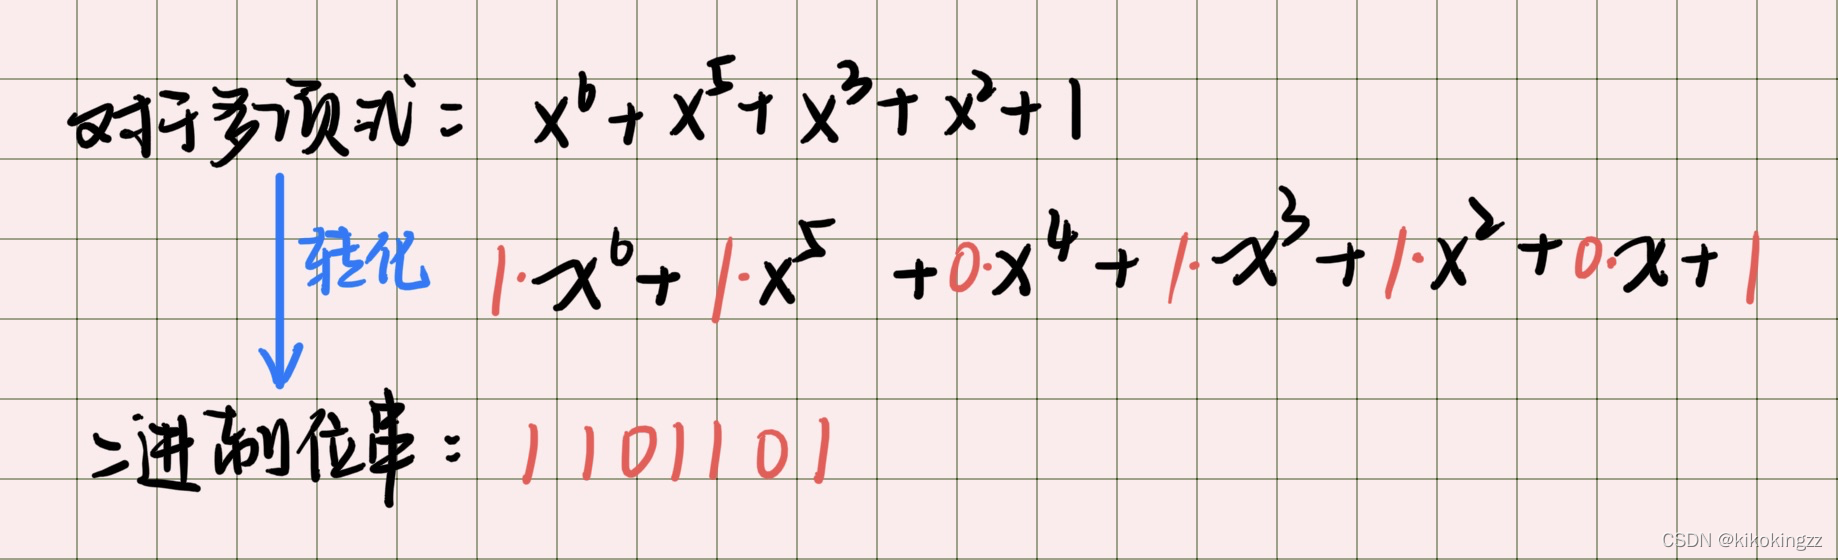 对于多项式： x⁶ + x⁵ + x³ + x² + 1
转化 1·x⁶ + 1·x⁵ + 0·x⁴ + 1·x³ + 1·x² + 0·x + 1
二进制位串： 1101101
CSDN @kikokingzz